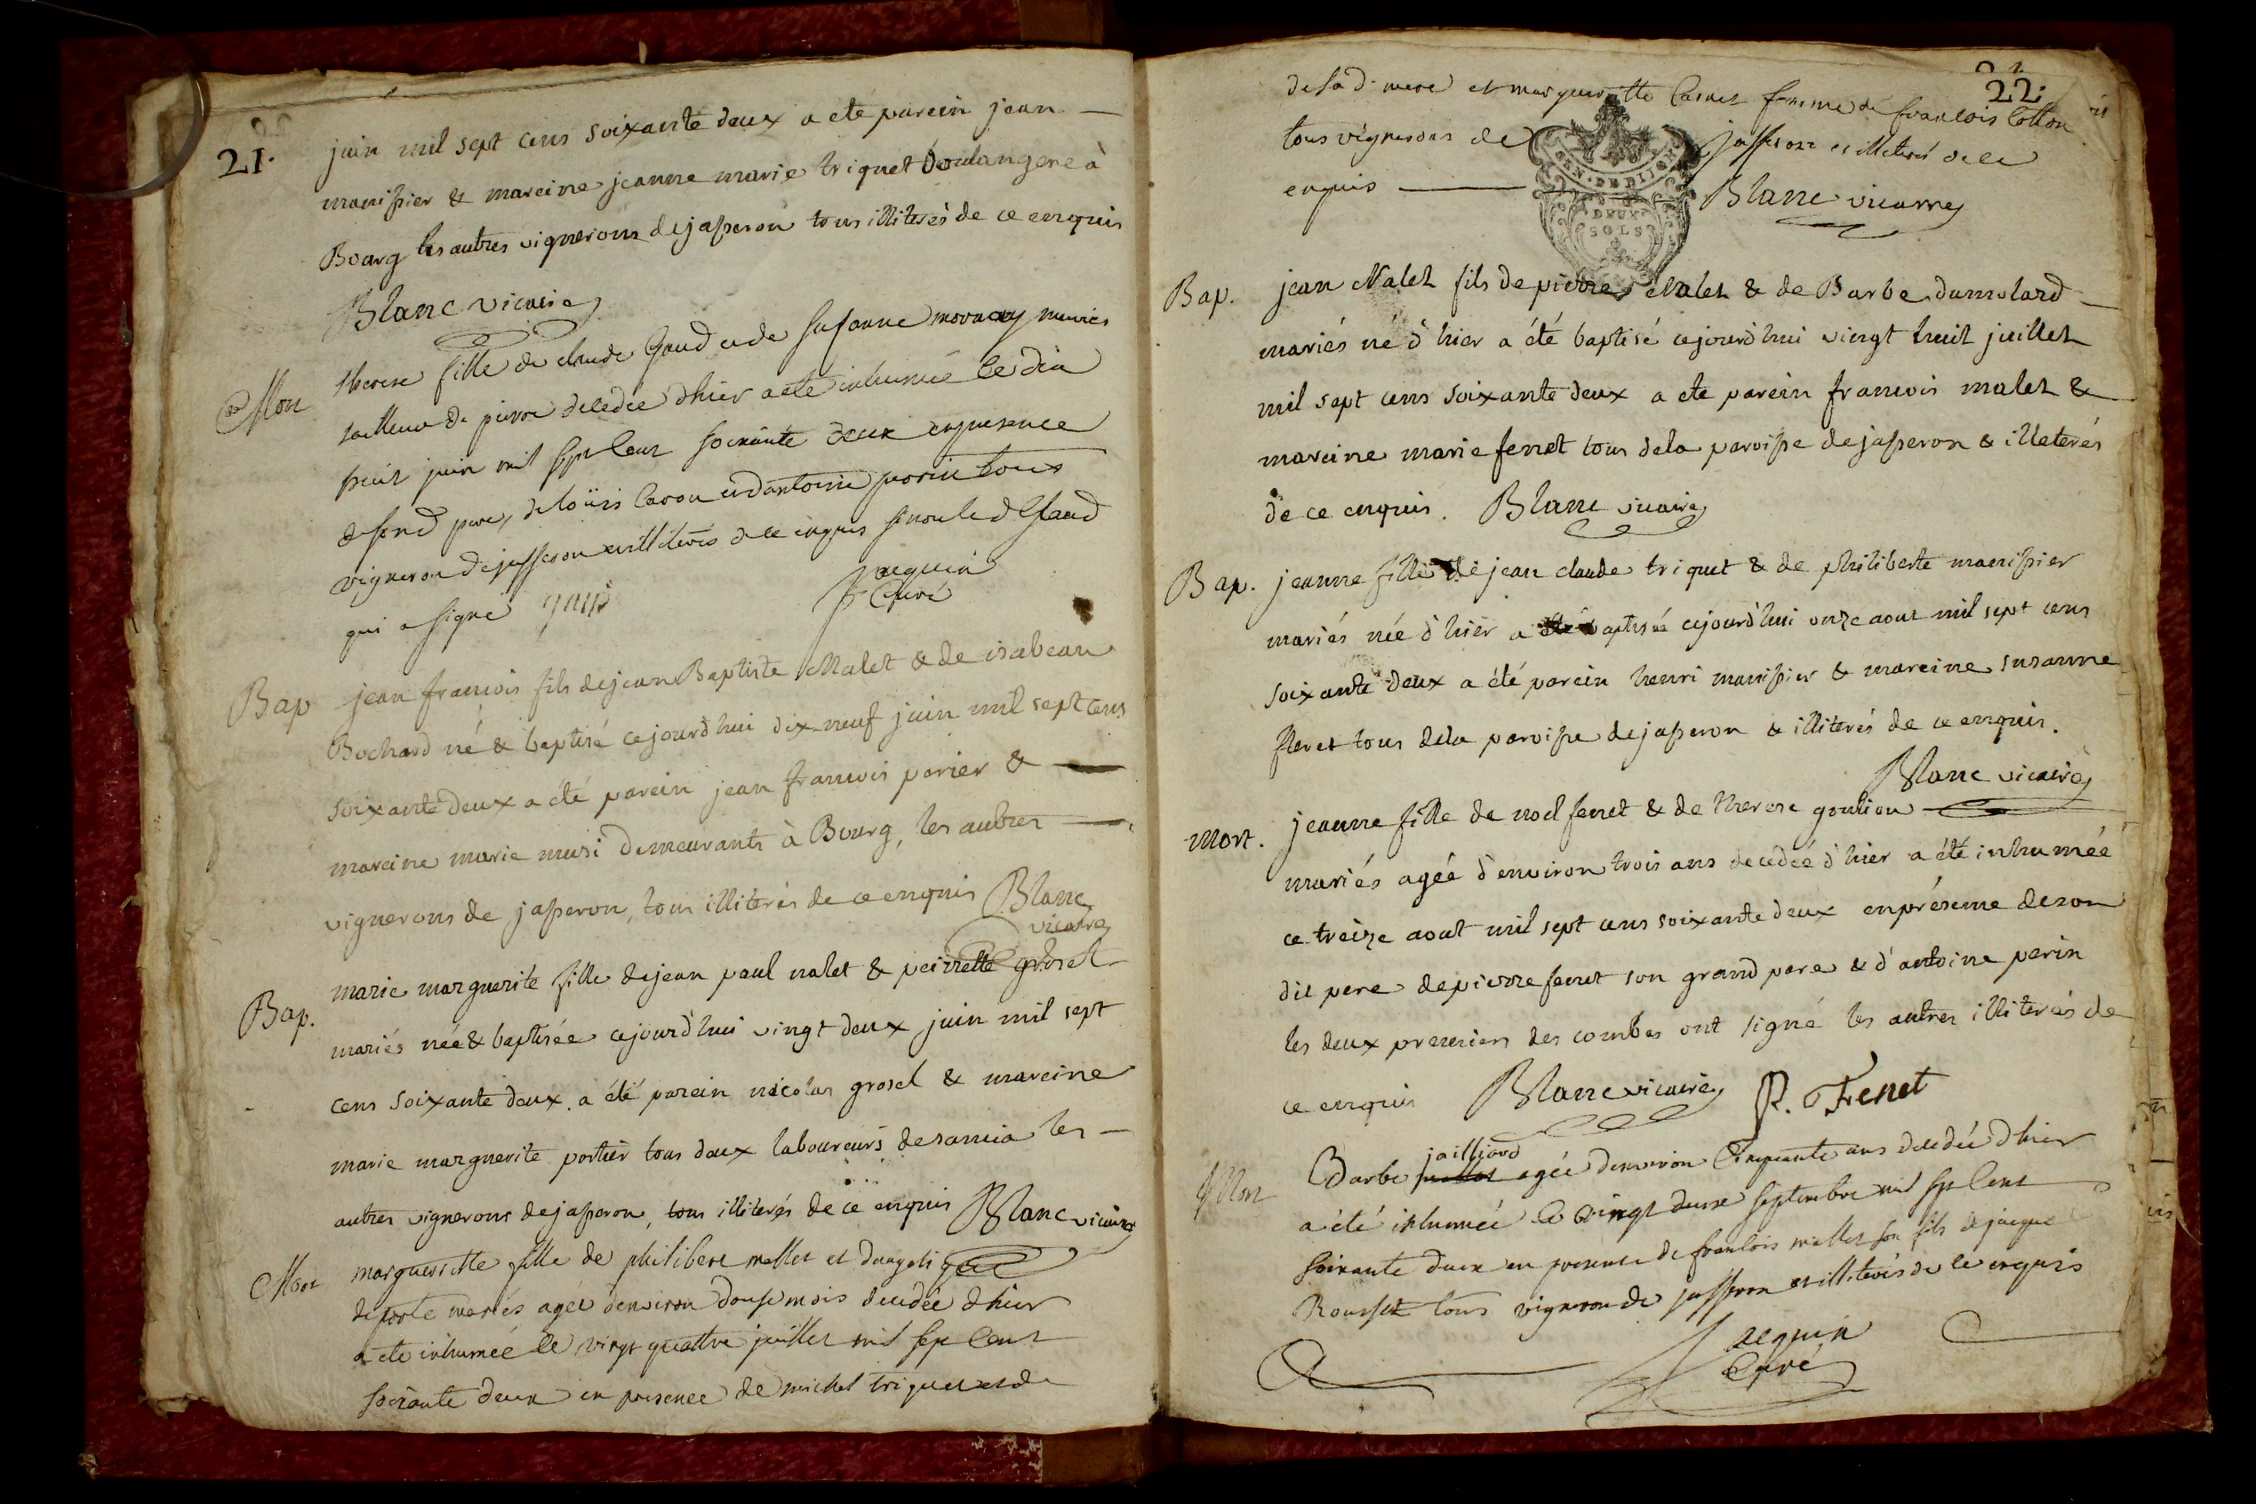 21.
juin mil sept cens soixante deux a ete parein jean
manissier & mareine jeanne marie triquet boulangere à
Bourg les autres vignerons de jasseron tous illiterés de ce enquis
Blanc vicaire
Mort
therese fille de claude Gaud et de susanne mornay mariés
tailleur de pierre decedee dhier a ete inhumée le dix
huit juin mil sept cent soixante deux en presence
de son d pere, de loüis et dantoine perin tous
vigneron de jasseron et illiterés de ce enquis sinon led Gaud
qui a signé gaud
Jacquin
Curé
Bap
jean francois fils de jean Baptiste Malet & de isabeau
Bochard né & baptisé cejourd'hui dix neuf juin mil sept cens
soixante deux a été parein jean francois perier &
mareine marie musi demeurants à Bourg, les autres
vignerons de jasseron, tous illiterés de ce enquis Blanc
vicaire
Bap.
marie marguerite fille de jean paul nalet & peirrette grosel
mariés née & baptisée cejourd'hui vingt deux juin mil sept
cens soixante deux a été parein nicolas grosel & mareine
marie marguerite portier tous deux laboureurs de sancia les
autres vignerons de jasseron, tous illiterés de ce enquis Blanc vicaire
Mort
marguerite fille de philibert mallet et
deporte mariés agée denviron douse mois decedée dhier
a ete inhumée le vingt quattre juillet mil sept cent
soixante deux en presence de michel triquet et de
22.
de sa d. mere et margueritte femme de francois
tous vignerons de jasseron et illiterés de ce
enquis Blanc vicaire
GEN. DE DIJON
DEUX
SOLS
Bap.
jean Malet fils de pierre Malet & de Barbe dumolard
mariés né d'hier a été baptisé cejourd'hui vingt huit juillet
mil sept cens soixante deux a ete parein francois malet &
mareine marie ferret tous de la paroisse de jasseron & illeterés
de ce enquis. Blanc vicaire
Bap.
jeanne fille de jean claude triquet & de philiberte manissier
mariés née d'hier a été baptisée cejourd'hui onze aout mil sept cens
soixante deux a été parein henri manissier & mareine susanne
feret tous de la paroisse de jasseron & illiterés de ce enquis.
Blanc vicaire
Mort.
jeanne fille de noel ferret & de therese goulion
mariés agée d'environ trois ans decedée d'hier a été inhumée
ce treize aout mil sept cens soixante deux en présence de son
dit pere de pierre ferret son grand pere & d'antoine perin
les deux premiers des combes ont signé les autres illiterés de
ce enquis Blanc vicaire P. Feret
Mort
Barbe jailliard agée denviron Cinquante ans decedée dhier
a été inhumée le vingt deux septembre mil sept cent
soixante deux en presence de francois mallet son fils de jacque
Rousset tous vigneron de jasseron et illiterés de ce enquis
Jacquin
Curé